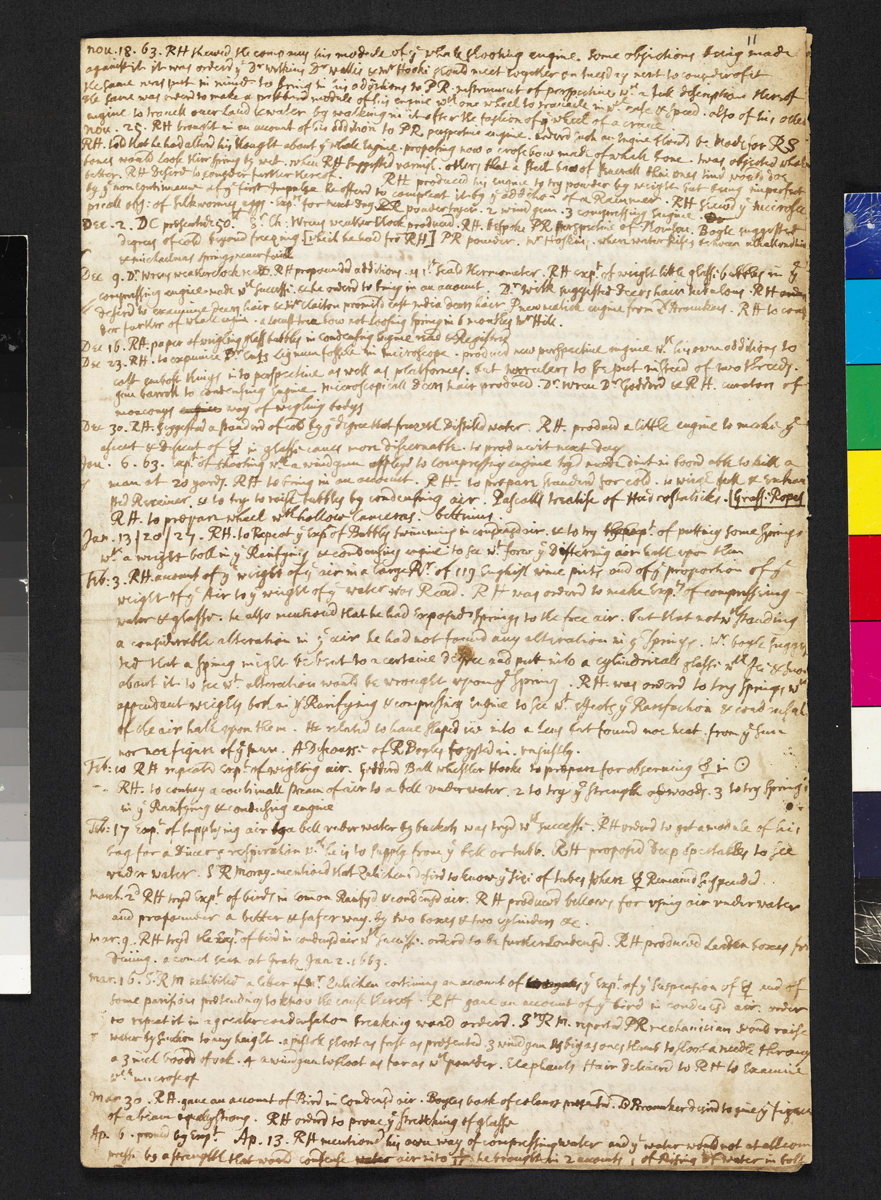 11
nov. 18. 63. RH shewed the company his module of yͤ whale shooting engine. Some objections being made
against it it was orderd yͭ Dr Wilkins Dr Wallis & mr Hooke should meet together on tuesday next to consider of it
the same was put in mind to bring in his additions to PR. instrument of perspective wᵗʰ a full description thereof
the same was orderd to make a module of his engine wᵗʰ one wheel to travaile in wᵗʰ ease & speed. also of his other
engine to travell over land & water by walking in it after the fashion of yͤ wheel of a crane
nov. 25. RH brought in an account of his addition to PR perspective engine. orderd yͭ an Engine should be made for RS
RH told that he had alterd his thought about yͤ whale Engine. proposing now a crosbow made of whale bone. twas objected whale
bones would loose their spring by wet. when RH suggested varnish. others that a steel
better. RH desired to consider further hereof. RH produced his engine to try powder by weight but being imperfect
by yͤ non continuance of yͤ first Impulse he offerd to compleat it by yͤ addition of a Rammer. RH shewd yͤ microsco
picall obs: of silkworms eggs. Expᵗ for next day powder tryer. 2 wind gun. 3 compressing Engine
Dec. 2. DC presented 50ˡ. Dr Ch: Wrens weather clock produced. RH. bespoke PR perspective of Monson. Boyle suggested
degrees of cold beyond freezing [which he had frō RH] PR powder. Mr Hoskins. when water rises
michaelmas springs never faile
Dec. 9. Dr Wrens weather clock read. RH propounded additions. 1 seald thermometer. RH expᵗ of weighᵗ little glasse bubbles in yͤ
compressing engine made wᵗʰ successe. & he orderd to bring in an account. Dr Wilk suggested Deers hair nebulous. RH
desird to examine deers hair & Mr Claiton promisd East India deers hair. Pneumatick engine from Ld Brounkers. RH to consi
der further of whale engine. a locust tree bow not loosing spring in 6 months Mr Hill.
Dec 16. RH. paper of weighing glasse bubbles in condensing engine read & Registred
Dec 23. RH. to examine Dr Ents Lignum fossile in microscope. produced new perspective engine wᵗʰ his own additions to
cast emboss things into perspective as well as platformes. but worculars to be put instead of two threeds.
gun barrell to condensing Engine. microscopicall deers hair produced. Dr. Wren Dr Goddard & RH. curators of
monconys way of weighing bodys
Dec 30. RH. suggested a standard of cold by yͤ degree that freezeth Distilld water. RH. produced a little engine to make yͤ
ascent & descent of ☿ in glasse canes more discernable. to produce it next day
Jan. 6. 63. Expᵗ. of shooting wᵗʰ a windgun applyed to compressing engine tryd made dint in bord able to kill a
man at 20 yards. RH to bring in an account. RH. to prepare standard for cold. to weigh
Receiver. & to try to raise bubbles by condensing air. Pascalls treatise of Hydrostaticks. [Grasse Ropes
RH. to prepare wheel wᵗʰ hollow cameras.
Jan. 13/20/27. RH. to Repeat yͤ Expᵗ of Bubbles swimming in condensd air. & to try expᵗ. of putting some springs
wᵗʰ a weight both in yͤ Rarifying & condensing engine to see wᵗ force yͤ differing air hath upon them
Feb: 3. RH. account of yͤ weight of yͤ air in a large Rᵣ. of 119 English wine pints and of yͤ proportion of yͤ
weight of yͤ Air to yͤ weight of yͤ water was Read. RH was orderd to make Expᵗ of compressing
water & glasse. he also mentioned that he had Exposed Springs to the free air. but that notwᵗʰstanding
a considerable alteration in yͤ air he had not found any alteration in yͤ springs. Mr. boyle sugges
ted that a spring might be bent to a certaine degree and putt into a cylindricall glasse wᵗʰ Ice & snow
about it to see wᵗ alteration would be wrought upon yͤ spring. RH was orderd to try springs wᵗʰ
appendent weights both in yͤ Rarifying & compressing Engine to see wᵗ effects yͤ Rarefaction & condensation
of the air hath upon them. He related to have shaped ice into a lens but found noe heat from yͤ sun
nor noe figure of yͤ same. A Discourse of R. Boyles
Feb: 10 RH repeated expᵗ of weighing air. Goddard Ball whistler Hooke to prepare for observing ☿ in ☉
RH. to convey a continuall stream of air to a bell under water. 2 to try yͤ strength of woods. 3 to try Springs
in yͤ Rarifying & condensing engine
Feb: 17 Expᵗ of supplying air to a bell under water by buckets was tryd wᵗʰ successe. RH orderd to get a module of his
bag for a Divers respiration wᶜʰ he is to supply from yͤ bell or tubb. RH proposed Deep spectacles to see
under water. S R Moray. mentiond that Zulichem desird to know yͤ size of tubes where ☿ Remaind suspended.
march. 2ᵈ RH tryd Expᵗ of birds in common Rarifyd & condensd air. RH produced bellows for using air under water
and propounded a better & safer way. by two boxes & two cylinders &c.
mar. 9. RH tryd the Expᵗ. of bird in condensd air wᵗʰ successe. orderd to be further condensd. RH produced Leaden boxes for
Diving. a comet seen at Gratz Jan 2. 1663.
mar. 16. Sr R M exhibited a letter of Zulichem containing an account of yͤ Expᵗ. of yͤ suspension of ☿ and of
some parisians pretending to know the cause thereof. RH gave an account of yͤ bird in condensed air. orderd
to repeat it in a greater condensation breaking wood orderd. Sr R M. reported PR mechanician would raise
water by suction to any height. a pistole shoot as fast as presented. 3 wind gun as big as ones thumb to shoot a needle through
a 3 inch board of oak. 4 a windgun to shoot as far as wᵗʰ powder. Elephants Hair deliverd to RH to Examine
wᵗʰ microscope
Mar 30. RH. gave an account of Bird in condensd air. Boyles book of colours presented. Ld Brounker desird to give yͤ figure
of a beam equaly strong. RH orderd to prove yͤ stretching of glasse
Ap. 6. provd by Expᵗ. Ap. 13. RH mentiond his own way of compressing water and yͭ water would not at all com
presse by a strength that would condense air into he brought in 2 accounts 1 of Rising of water in bolt